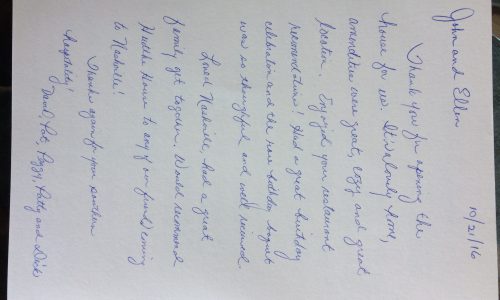 10/21/16
John and Ellen
Thank you for opening the
house for us. It is a lovely home,
amenities were great, cozy and great
location. Enjoyed your restaurant
recommendations! Had a great birthday
celebration and the
was so thoughtful and well received.
Loved Nashville, had a great
family get together. Would recommend
House to any of our friends coming
to Nashville!
Thanks again for your southern
hospitality!
Pat, Peggy, Patty and Dick